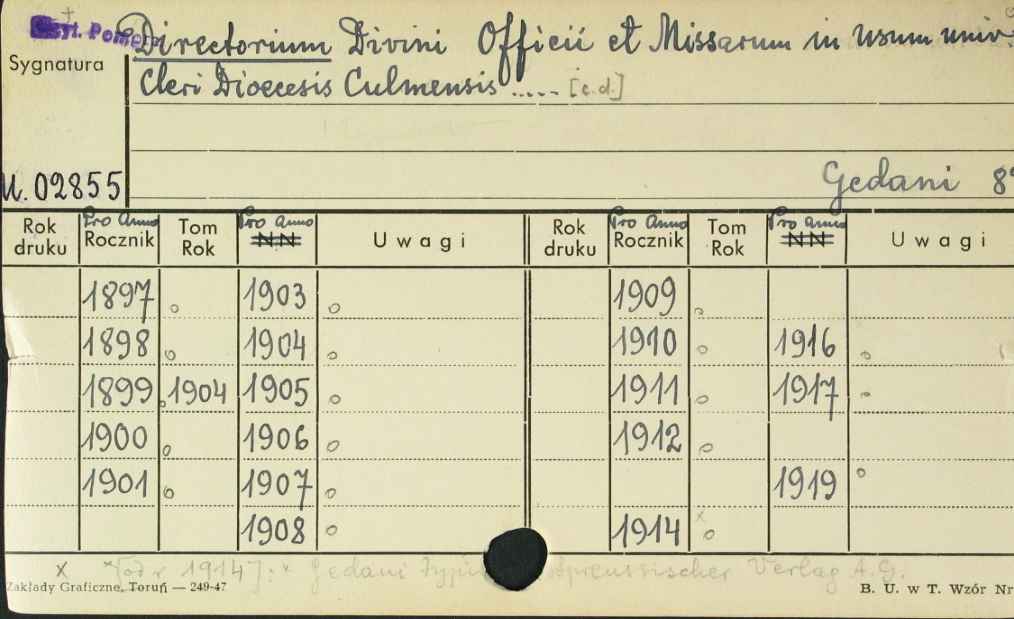 Directorium Divini Officii et Missarum in usum univ.
Sygnatura
Cleri Dioecesis Culmensis ..... [c.d.]
U. 02855
Gedani 8°
Pro Anno Pro Anno Pro Anno Pro Anno
Rok druku Rocznik Tom Rok NN Uwagi Rok druku Rocznik Tom Rok NN Uwagi
1897 o 1903 o 1909 o
1898 o 1904 o 1910 o 1916 o
1899 o 1904 1905 o 1911 o 1917 o
1900 o 1906 o 1912 o
1901 o 1907 o 1919 o
1908 o 1914 x o
x [od r. 1914]: Gedani Verlag A.G.
Zakłady Graficzne, Toruń — 249-47
B. U. w T. Wzór Nr